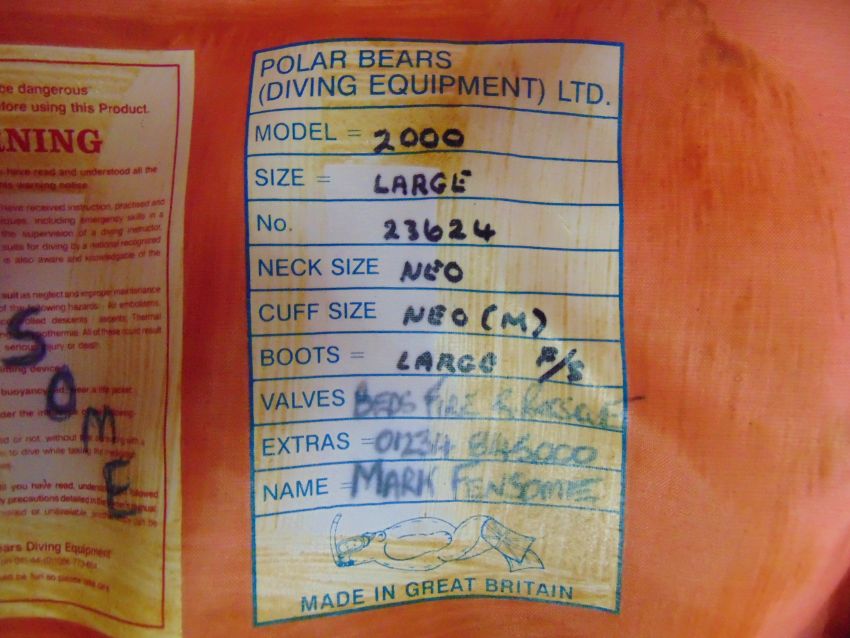 be dangerous
fore using this Product.
NING
have read and understood all the
this warning notice
have received instruction, practised and
including emergency skills in a
the supervision of a diving instructor.
suits for diving by a national recognized
is also aware and knowledgable of the
suit as neglect and improper maintenance
of the following hazards: Air embolisms,
descents ascents Thermal
All of these could result
serious injury or death
S
O
M
E
buoyancy
wear a life jacket
der the
or not, without
to dive while taking
you have read,
followed
precautions detailed in the
manual
or unavailable
can be
ears Diving Equipment
POLAR BEARS
(DIVING EQUIPMENT) LTD.
MODEL = 2000
SIZE = LARGE
No. 23624
NECK SIZE NEO
CUFF SIZE NEO (M)
BOOTS = LARGE F/S
VALVES BEDS FIRE & RESCUE
EXTRAS = 01234 845000
NAME = MARK FENSOME
MADE IN GREAT BRITAIN